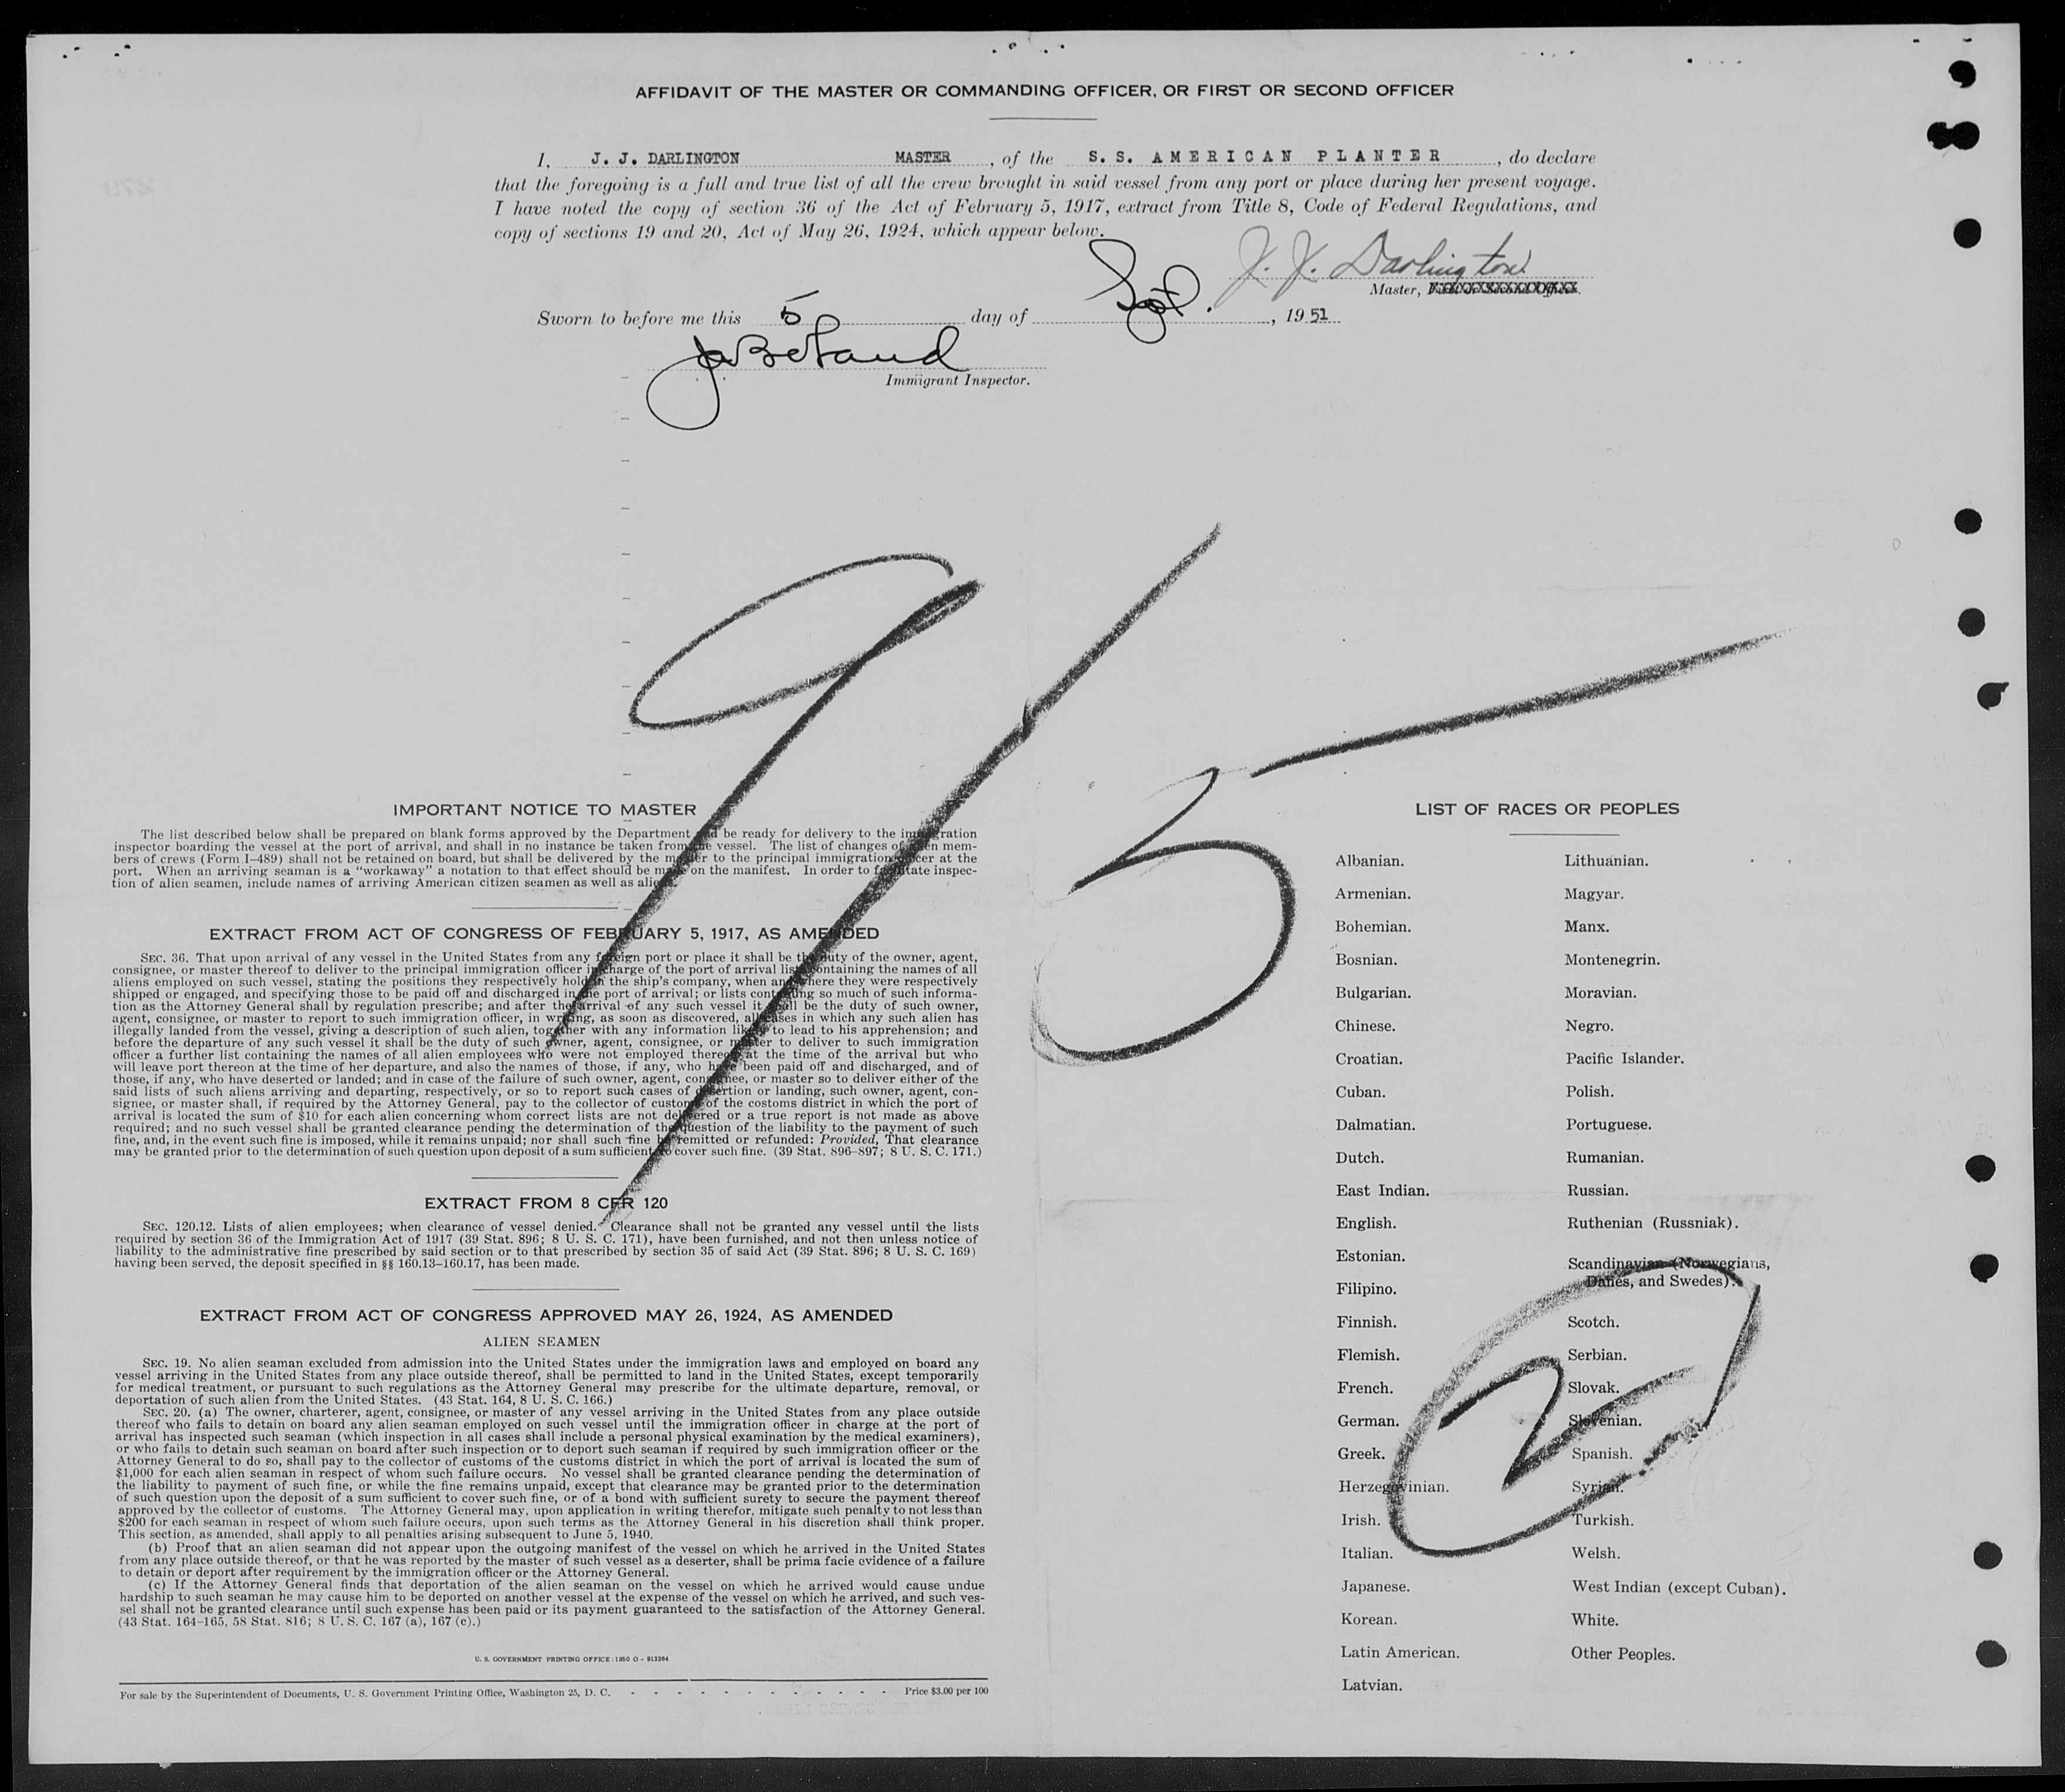 AFFIDAVIT OF THE MASTER OR COMMANDING OFFICER, OR FIRST OR SECOND OFFICER
I, J. J. DARLINGTON MASTER, of the S. S. AMERICAN PLANTER, do declare
that the foregoing is a full and true list of all the crew brought in said vessel from any port or place during her present voyage.
I have noted the copy of section 36 of the Act of February 5, 1917, extract from Title 8, Code of Federal Regulations, and
copy of sections 19 and 20, Act of May 26, 1924, which appear below.
J. J. Darlington
Master, First or Second Officer.
Sworn to before me this 5 day of Sept., 1951
Immigrant Inspector.
9/5
IMPORTANT NOTICE TO MASTER
The list described below shall be prepared on blank forms approved by the Department and be ready for delivery to the immigration
inspector boarding the vessel at the port of arrival, and shall in no instance be taken from the vessel. The list of changes of alien mem-
bers of crews (Form I–489) shall not be retained on board, but shall be delivered by the master to the principal immigration officer at the
port. When an arriving seaman is a "workaway" a notation to that effect should be made on the manifest. In order to facilitate inspec-
tion of alien seamen, include names of arriving American citizen seamen as well as aliens.
EXTRACT FROM ACT OF CONGRESS OF FEBRUARY 5, 1917, AS AMENDED
SEC. 36. That upon arrival of any vessel in the United States from any foreign port or place it shall be the duty of the owner, agent,
consignee, or master thereof to deliver to the principal immigration officer in charge of the port of arrival lists containing the names of all
aliens employed on such vessel, stating the positions they respectively hold in the ship's company, when and where they were respectively
shipped or engaged, and specifying those to be paid off and discharged in the port of arrival; or lists containing so much of such informa-
tion as the Attorney General shall by regulation prescribe; and after the arrival of any such vessel it shall be the duty of such owner,
agent, consignee, or master to report to such immigration officer, in writing, as soon as discovered, all cases in which any such alien has
illegally landed from the vessel, giving a description of such alien, together with any information likely to lead to his apprehension; and
before the departure of any such vessel it shall be the duty of such owner, agent, consignee, or master to deliver to such immigration
officer a further list containing the names of all alien employees who were not employed thereon at the time of the arrival but who
will leave port thereon at the time of her departure, and also the names of those, if any, who have been paid off and discharged, and of
those, if any, who have deserted or landed; and in case of the failure of such owner, agent, consignee, or master so to deliver either of the
said lists of such aliens arriving and departing, respectively, or so to report such cases of desertion or landing, such owner, agent, con-
signee, or master shall, if required by the Attorney General, pay to the collector of customs of the costoms district in which the port of
arrival is located the sum of $10 for each alien concerning whom correct lists are not delivered or a true report is not made as above
required; and no such vessel shall be granted clearance pending the determination of the question of the liability to the payment of such
fine, and, in the event such fine is imposed, while it remains unpaid; nor shall such fine be remitted or refunded: Provided, That clearance
may be granted prior to the determination of such question upon deposit of a sum sufficient to cover such fine. (39 Stat. 896–897; 8 U. S. C. 171.)
EXTRACT FROM 8 CFR 120
SEC. 120.12. Lists of alien employees; when clearance of vessel denied. Clearance shall not be granted any vessel until the lists
required by section 36 of the Immigration Act of 1917 (39 Stat. 896; 8 U. S. C. 171), have been furnished, and not then unless notice of
liability to the administrative fine prescribed by said section or to that prescribed by section 35 of said Act (39 Stat. 896; 8 U. S. C. 169)
having been served, the deposit specified in §§ 160.13–160.17, has been made.
EXTRACT FROM ACT OF CONGRESS APPROVED MAY 26, 1924, AS AMENDED
ALIEN SEAMEN
SEC. 19. No alien seaman excluded from admission into the United States under the immigration laws and employed on board any
vessel arriving in the United States from any place outside thereof, shall be permitted to land in the United States, except temporarily
for medical treatment, or pursuant to such regulations as the Attorney General may prescribe for the ultimate departure, removal, or
deportation of such alien from the United States. (43 Stat. 164, 8 U. S. C. 166.)
SEC. 20. (a) The owner, charterer, agent, consignee, or master of any vessel arriving in the United States from any place outside
thereof who fails to detain on board any alien seaman employed on such vessel until the immigration officer in charge at the port of
arrival has inspected such seaman (which inspection in all cases shall include a personal physical examination by the medical examiners),
or who fails to detain such seaman on board after such inspection or to deport such seaman if required by such immigration officer or the
Attorney General to do so, shall pay to the collector of customs of the customs district in which the port of arrival is located the sum of
$1,000 for each alien seaman in respect of whom such failure occurs. No vessel shall be granted clearance pending the determination of
the liability to payment of such fine, or while the fine remains unpaid, except that clearance may be granted prior to the determination
of such question upon the deposit of a sum sufficient to cover such fine, or of a bond with sufficient surety to secure the payment thereof
approved by the collector of customs. The Attorney General may, upon application in writing therefor, mitigate such penalty to not less than
$200 for each seaman in respect of whom such failure occurs, upon such terms as the Attorney General in his discretion shall think proper.
This section, as amended, shall apply to all penalties arising subsequent to June 5, 1940.
(b) Proof that an alien seaman did not appear upon the outgoing manifest of the vessel on which he arrived in the United States
from any place outside thereof, or that he was reported by the master of such vessel as a deserter, shall be prima facie evidence of a failure
to detain or deport after requirement by the immigration officer or the Attorney General.
(c) If the Attorney General finds that deportation of the alien seaman on the vessel on which he arrived would cause undue
hardship to such seaman he may cause him to be deported on another vessel at the expense of the vessel on which he arrived, and such ves-
sel shall not be granted clearance until such expense has been paid or its payment guaranteed to the satisfaction of the Attorney General.
(43 Stat. 164–165, 58 Stat. 816; 8 U. S. C. 167 (a), 167 (c).)
U. S. GOVERNMENT PRINTING OFFICE: 1950 O - 913264
For sale by the Superintendent of Documents, U. S. Government Printing Office, Washington 25, D. C. - - - - - - - - - - - - Price $3.00 per 100
LIST OF RACES OR PEOPLES
Albanian.
Armenian.
Bohemian.
Bosnian.
Bulgarian.
Chinese.
Croatian.
Cuban.
Dalmatian.
Dutch.
East Indian.
English.
Estonian.
Filipino.
Finnish.
Flemish.
French.
German.
Greek.
Herzegovinian.
Irish.
Italian.
Japanese.
Korean.
Latin American.
Latvian.
Lithuanian.
Magyar.
Manx.
Montenegrin.
Moravian.
Negro.
Pacific Islander.
Polish.
Portuguese.
Rumanian.
Russian.
Ruthenian (Russniak).
Scandinavian (Norwegians,
Danes, and Swedes).
Scotch.
Serbian.
Slovak.
Slovenian.
Spanish.
Syrian.
Turkish.
Welsh.
West Indian (except Cuban).
White.
Other Peoples.
2